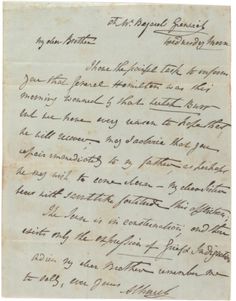 at Mr. Bayard Greenwich
Wednesday Morn
My dear Brother
I have the painful task to inform
you that General Hamilton was this
morning wounded by that wretch Burr
but we have every reason to hope that
he will recover. May I advise that you
repair immediately to my father, as perhaps
he may wish to come down – My dear Sister
bears with saintlike fortitude this affliction.
The Town is in consternation, and there
exists only the expression of Grief & Indignation.
adieu my dear Brother remember me
to Sally, ever yours
A Church